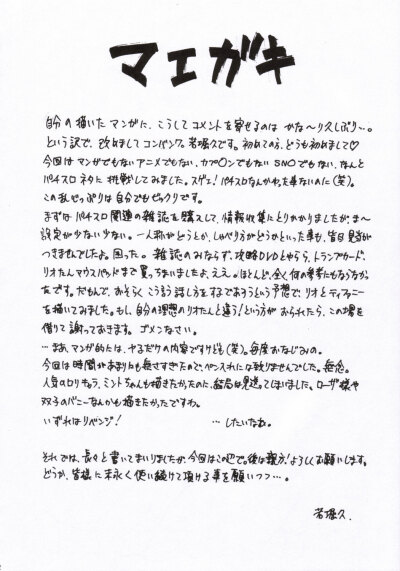 マエガキ
自分の描いたマンガに、こうしてコメントを寄せるのは かな〜り久しぶり…。
という訳で、改めましてコンバンワ。若堀久です。初めての方、どうも初めまして♡
今回は マンガでもないアニメでもない、カプ○ンでもない SNOでもない、なんと
パチスロ ネタに 挑戦してみました。スゲェ! パチスロなんかやった事ないのに(笑)。
この乱ぜっぷりは自分でもビックリです。
まずは パチスロ 関連の雑誌を購入して、情報収集にとりかかりましたが、ま〜
設定が少ない少ない。一人称がどうとか、しゃべり方がどうかといった事も、皆目見当が
つきませんでしたよ。困った。雑誌のみならず、攻略DVDとやらやら、トランプカード、
リオたんマウスパッドまで買っちまいましたよ、ええ。ほとんど、全く何の参考にもならなかっ
たです。だもんで、おそらくこう言う話し方をするであろうという予想で、リオとティファニー
を描いてみました。もし、自分の理想のリオたんと違う!という方がおられたら、この場を
借りて謝っておきます。ゴメンなさい。
…まあ、マンガ的には、ヤるだけの内容ですけども(笑)。毎度おなじみの。
今回は時間があまりにも無さすぎたので、ペン入れになり取りませんでした。無念。
人気のロリキャラ、ミントちゃんも描きたかったのに、結局は見送ってしまいました。ローザ様や
双子のバニーなんかも描きたかったですわ。
いずれはリベンジ! …したいなぁ。
それでは、長々と書いてまいりましたが、今回はこの辺で。後は親方!よろしくお願いします。
どうか、皆様に末永く使い続けて頂ける事を願いつつ…。
若堀久.